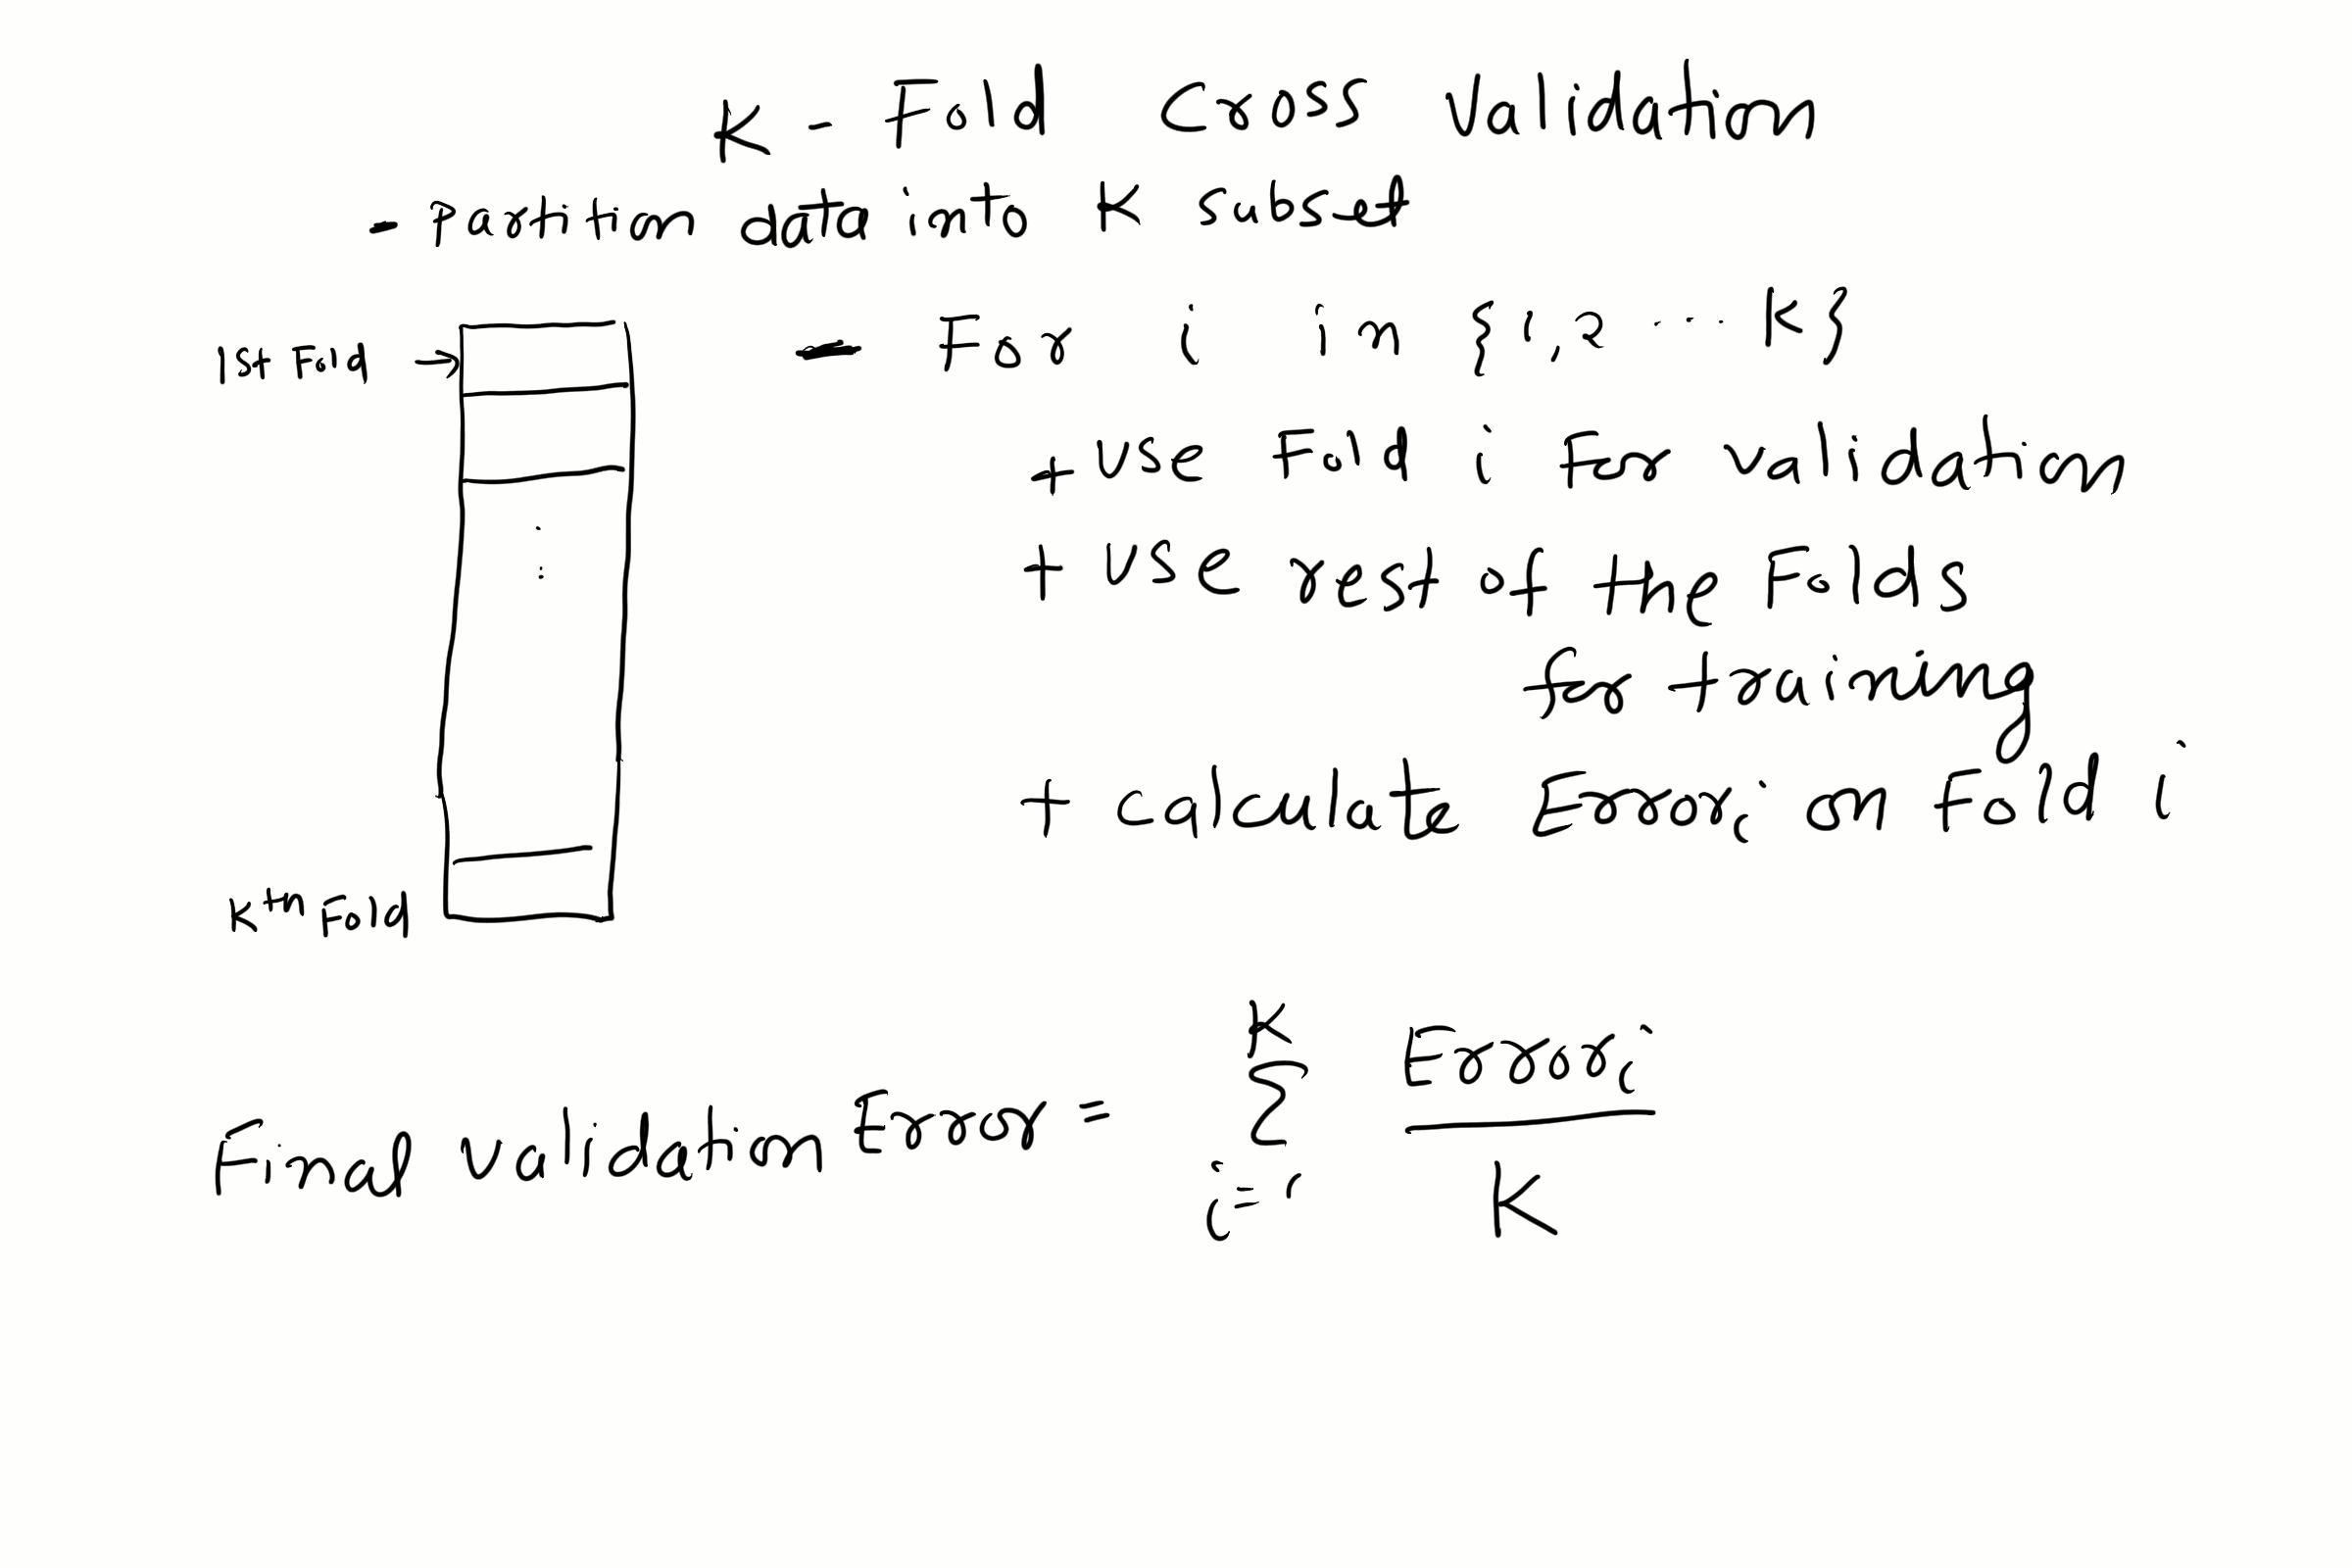 K - Fold Cross Validation
- Partition data into K subset
1st Fold →
- For i in {1,2 ... K}
+ Use Fold i For validation
+ Use rest of the Folds
for training
+ Calculate Error_i on Fold i
K^th Fold
Final Validation Error = \sum_{i=1}^{K} \frac{Error_i}{K}